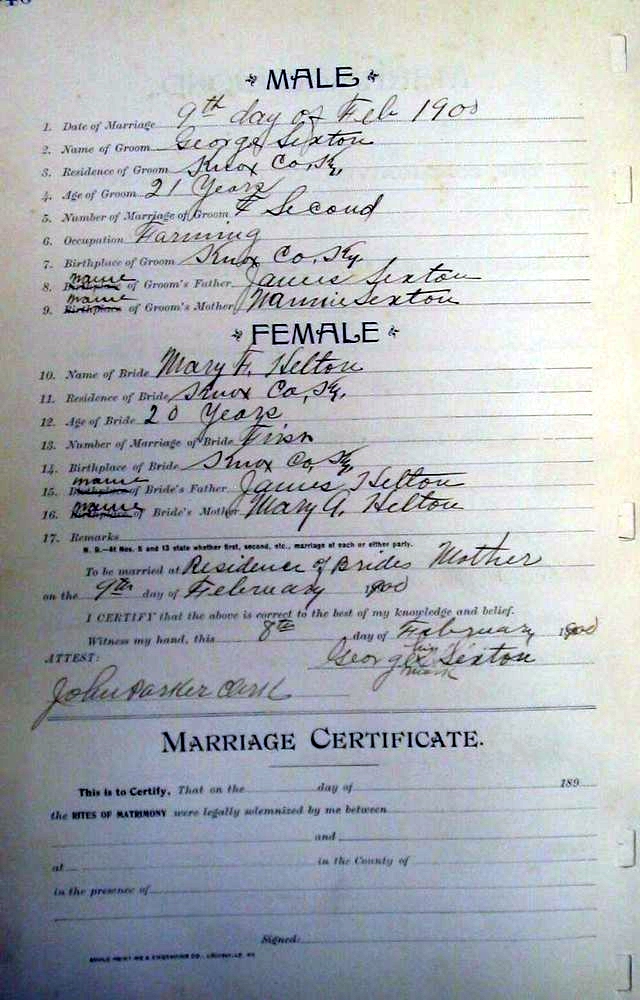 MALE
1. Date of Marriage 9th day of Feb 1900
2. Name of Groom George Sexton
3. Residence of Groom Knox Co, Ky,
4. Age of Groom 21 Years
5. Number of Marriage of Groom Second
6. Occupation Farming
7. Birthplace of Groom Knox Co, Ky
8. Birthplace name of Groom's Father James Sexton
9. Birthplace name of Groom's Mother Nannie Sexton
FEMALE
10. Name of Bride Mary F. Helton
11. Residence of Bride Knox Co, Ky,
12. Age of Bride 20 Years
13. Number of Marriage of Bride First
14. Birthplace of Bride Knox Co, Ky
15. Birthplace name of Bride's Father James Helton
16. Birthplace name of Bride's Mother Mary A. Helton
17. Remarks
N. B.—At Nos. 5 and 13 state whether first, second, etc., marriage of each or either party.
To be married at Residence of Brides Mother
on the 9th day of February 1900
I CERTIFY that the above is correct to the best of my knowledge and belief.
Witness my hand, this 8th day of February 1900
ATTEST: George his x mark Sexton
John Parker Clerk
MARRIAGE CERTIFICATE.
This is to Certify, That on the day of 189
the RITES OF MATRIMONY were legally solemnized by me between
and
at in the County of
in the presence of
Signed: